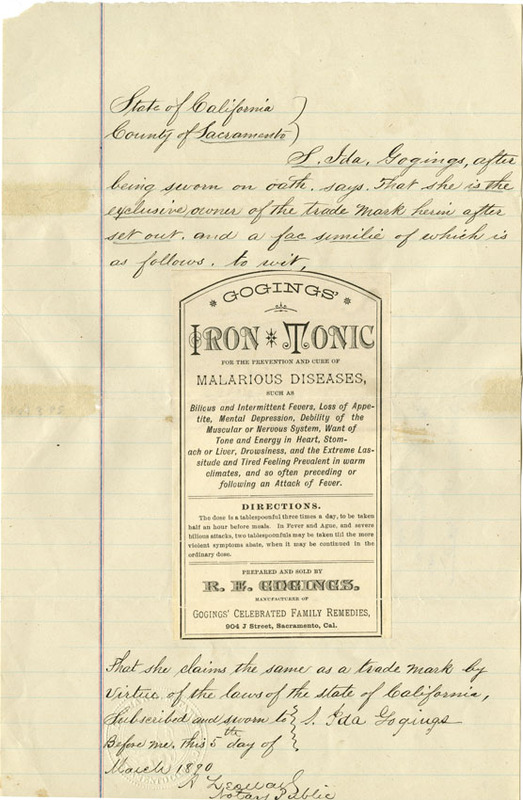 State of California )
County of Sacramento )
S. Ida. Gogings, after
being sworn on oath. says. That she is the
exclusive owner of the trade mark herin after
set out. and a fac similie of which is
as follows. to wit,
GOGINGS'
IRON TONIC
FOR THE PREVENTION AND CURE OF
MALARIOUS DISEASES,
SUCH AS
Bilious and Intermittent Fevers, Loss of Appe-
tite, Mental Depression, Debility of the
Muscular or Nervous System, Want of
Tone and Energy in Heart, Stom-
ach or Liver, Drowsiness, and the Extreme Las-
situde and Tired Feeling Prevalent in warm
climates, and so often preceding or
following an Attack of Fever.
DIRECTIONS.
The dose is a tablespoonful three times a day, to be taken
half an hour before meals. In Fever and Ague, and severe
bilious attacks, two tablespoonfuls may be taken till the more
violent symptoms abate, when it may be continued in the
ordinary dose.
PREPARED AND SOLD BY
R. E. GOGINGS.
MANUFACTURER OF
GOGINGS' CELEBRATED FAMILY REMEDIES,
904 J Street, Sacramento, Cal.
That she claims the same as a trade mark by
virtue of the laws of the state of California,
Subscribed and sworn to } S. Ida Gogings
Before me. this 5th day of }
March 1890
A
Notary Public